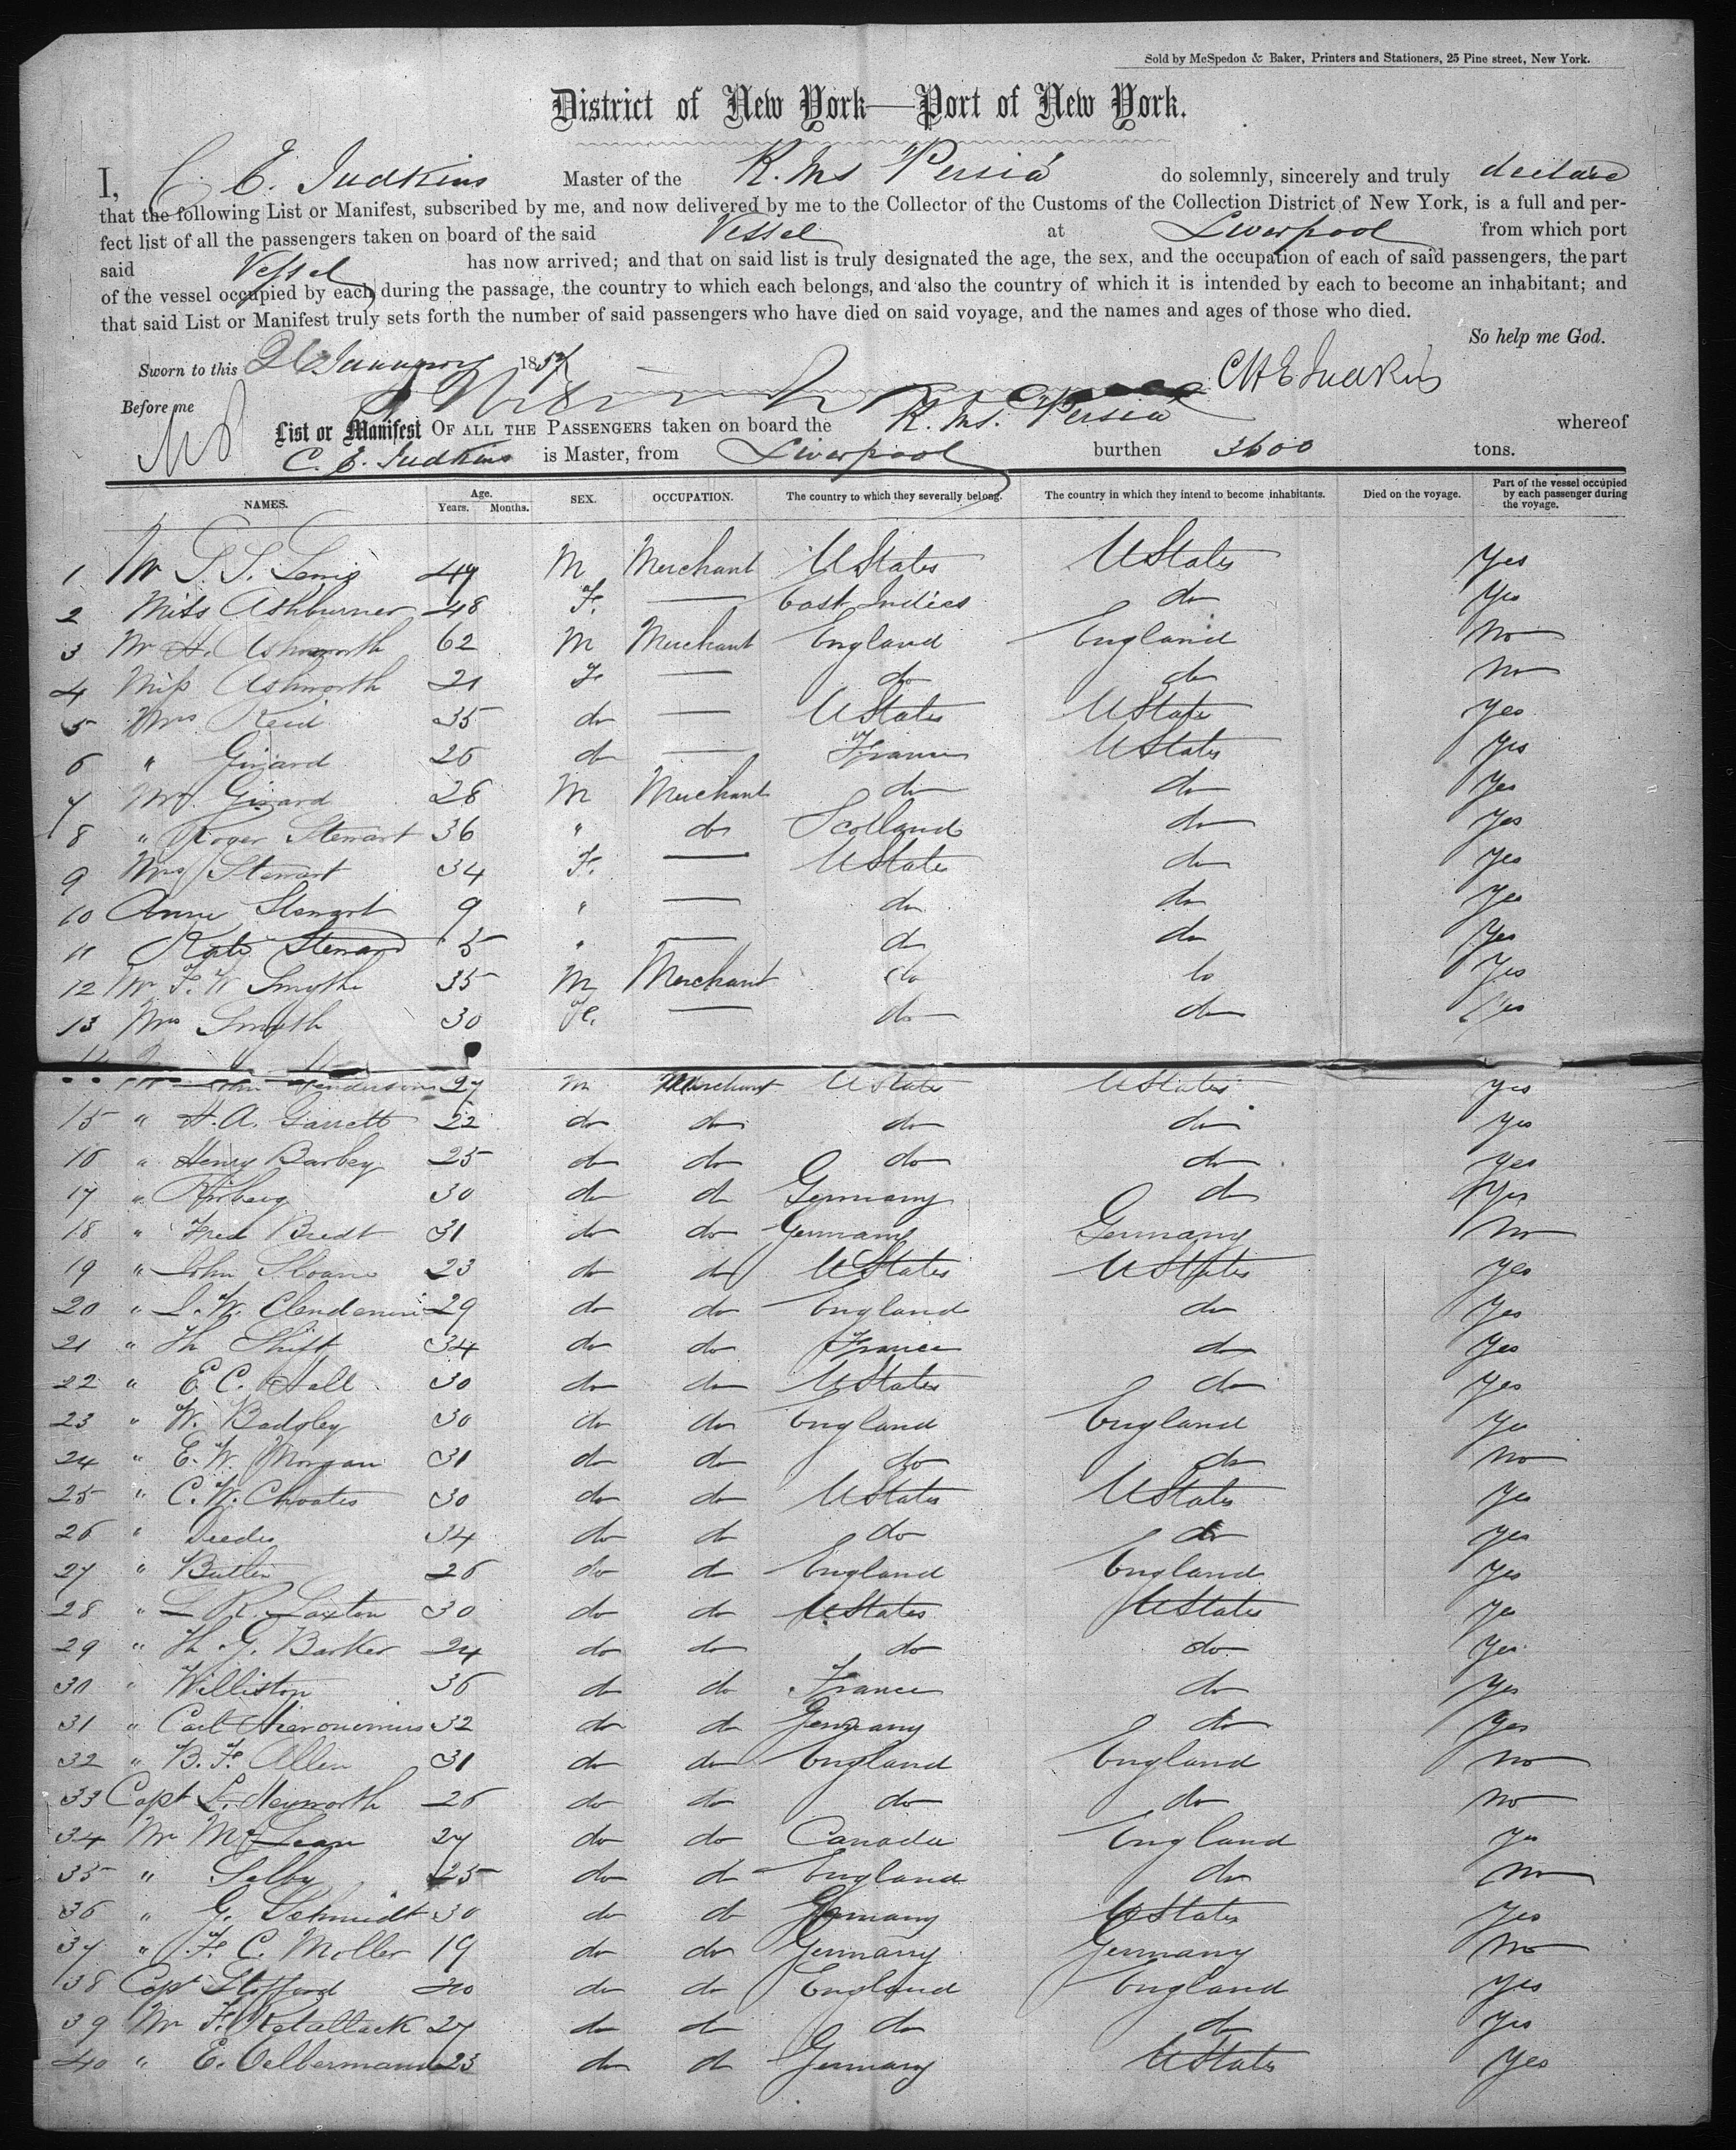 Sold by McSpedon & Baker, Printers and Stationers, 25 Pine street, New York.
District of New York—Port of New York.
I, C. E. Judkins Master of the R. Ms Persia do solemnly, sincerely and truly declare
that the following List or Manifest, subscribed by me, and now delivered by me to the Collector of the Customs of the Collection District of New York, is a full and per-
fect list of all the passengers taken on board of the said Vessel at Liverpool from which port
said Vessel has now arrived; and that on said list is truly designated the age, the sex, and the occupation of each of said passengers, the part
of the vessel occupied by each during the passage, the country to which each belongs, and also the country of which it is intended by each to become an inhabitant; and
that said List or Manifest truly sets forth the number of said passengers who have died on said voyage, and the names and ages of those who died.
So help me God.
Sworn to this 26 January 1857 CHE Judkins
Before me
List or Manifest OF ALL THE PASSENGERS taken on board the R. Ms. Persia whereof
C. E. Judkins is Master, from Liverpool burthen 3600 tons.
NAMES. Age. Years. Months. SEX. OCCUPATION. The country to which they severally belong. The country in which they intend to become inhabitants. Died on the voyage. Part of the vessel occupied by each passenger during the voyage.
1 Mr S. S. Lewis 49 M Merchant UStates UStates Yes
2 Miss Ashburner 48 F. — East Indies do Yes
3 Mr H. Ashworth 62 M Merchant England England No
4 Miss Ashworth 21 F — do do No
5 Mrs Reid 35 do — UStates UStates Yes
6 " Girard 26 do — France UStates Yes
7 Mr. Girard 28 M Merchant do do Yes
8 " Roger Stewart 36 " do Scotland do Yes
9 Mrs Stewart 34 F. — UStates do Yes
10 Anne Stewart 9 " — do do Yes
11 Kate Steward 5 " — do do Yes
12 Mr F. W Smythe 35 M Merchant do do Yes
13 Mrs Smyth 30 F. — do do Yes
John Henderson 27 M Merchant UStates UStates Yes
15 " H. A. Garrett 22 do do do do Yes
16 " Henry Barbey 25 do do do do Yes
17 " 30 do do Germany do Yes
18 " Fred Bredt 31 do do Germany Germany No
19 " John Sloane 23 do do UStates UStates Yes
20 " L. W. Clendenin 29 do do England do Yes
21 " Th Shift 34 do do France do Yes
22 " E C. Hall 30 do do UStates do Yes
23 " W. Badgley 30 do do England England Yes
24 " E. W. Morgan 31 do do do do No
25 " C. W. Choates 30 do do UStates UStates Yes
26 " 34 do do do do Yes
27 " Butler 26 do do England England Yes
28 " L R. Laxton 30 do do UStates UStates Yes
29 " Th G. Barker 24 do do do do Yes
30 " Williston 36 do do France do Yes
31 " Carl Hieronimus 32 do do Germany do Yes
32 " B. F. Allen 31 do do England England No
33 Capt L. Heyworth 26 do do do do No
34 Mr McLean 27 do do Canada England Yes
35 " Selby 25 do do England do No
36 " G. Schmidt 30 do do Germany UStates Yes
37 " F. C. Moller 19 do do Germany Germany No
38 Capt Stopford 40 do do England England Yes
39 Mr F. Retallack 27 do do do do Yes
40 " E. Oelbermann 23 do do Germany UStates Yes